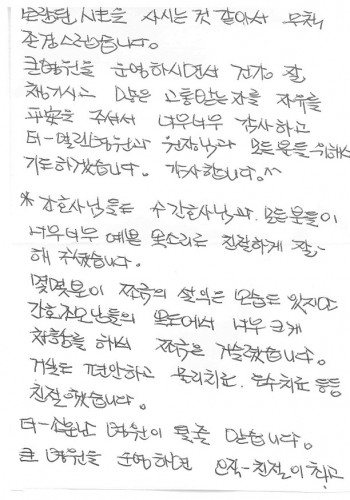 보람된 人生을 사시는 것 같아서 무척
존경스럽습니다.
큰병원을 운영하시면서 건강 잘
챙기시고 많은 고통받는 자를 자유를
平安을 주셔서 너무너무 감사하고
더-열린병원과 원장님과 모든분들 위해서
기도하겠습니다. 감사합니다.^^
* 간호사님들도 수간호사님과 모든분들이
너무너무 예쁜 목소리로 친절하게 잘-
해 주셨습니다.
몇몇분이 쪼금의 모습도 있지만
간호 님들의 에서 너무 크게
를 해서 쪼금은 거슬렸습니다.
거실도 편안하고 물리치료. 도수치료 등등
친절했습니다.
더- 병원이 될줄 믿습니다.
큰 병원을 운영하면 오직-친절이 최고